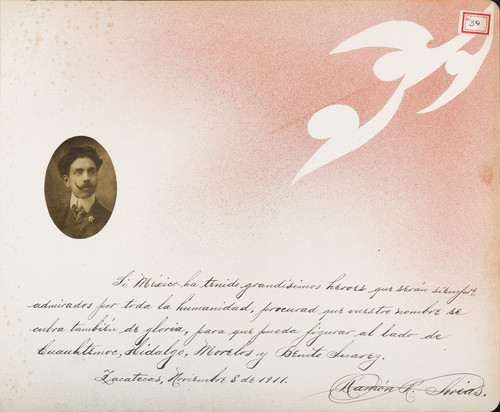 39
Si México ha tenido grandísimos heroes que serán siempre
admirados por toda la humanidad, procurad que vuestro nombre se
cubra también de gloria, para que pueda figurar al lado de
Cuauhtemoc, Hidalgo, Morelos y Benito Juarez.
Zacatecas, Noviembre 8 de 1911.
Ramón R.